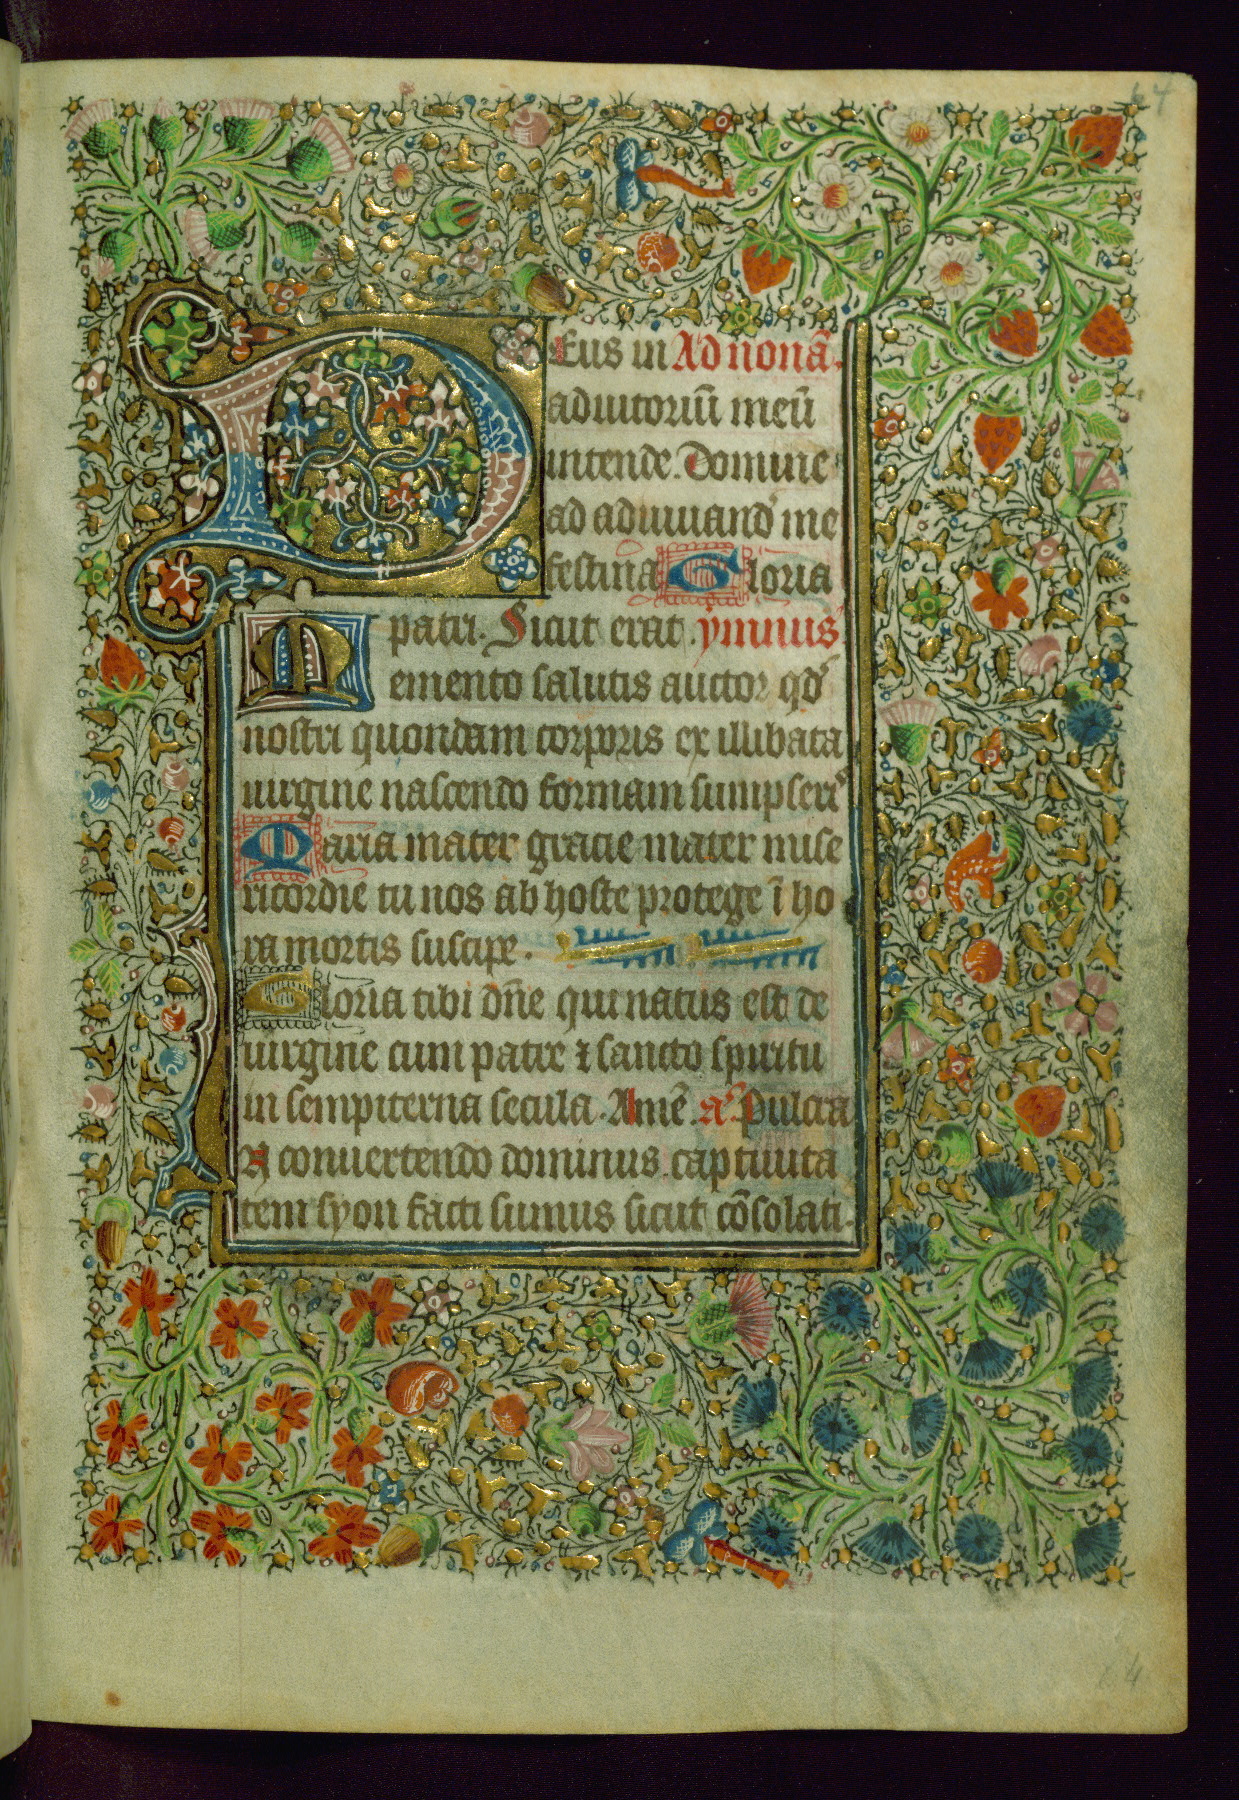 64
DEus in Ad nonā.
adiutoriū meū
intende. Domine
ad adiuuand̄ me
festina Gloria
patri. Sicut erat. ymnus
Memento salutis auctor qd̛
nostri quondam corporis ex illibata
uirgine nascendo formam sumpseris
Maria mater gracie mater mise
ricordie tu nos ab hoste protege ī ho
ra mortis suscipe.
Gloria tibi dn̄e qui natus est de
uirgine cum patre ⁊ sancto spiritu
in sempiterna secula. Amē. a͛ Pulcra
IN conuertendo dominus captiuita
tem syon facti sumus sicut cōsolati.
64